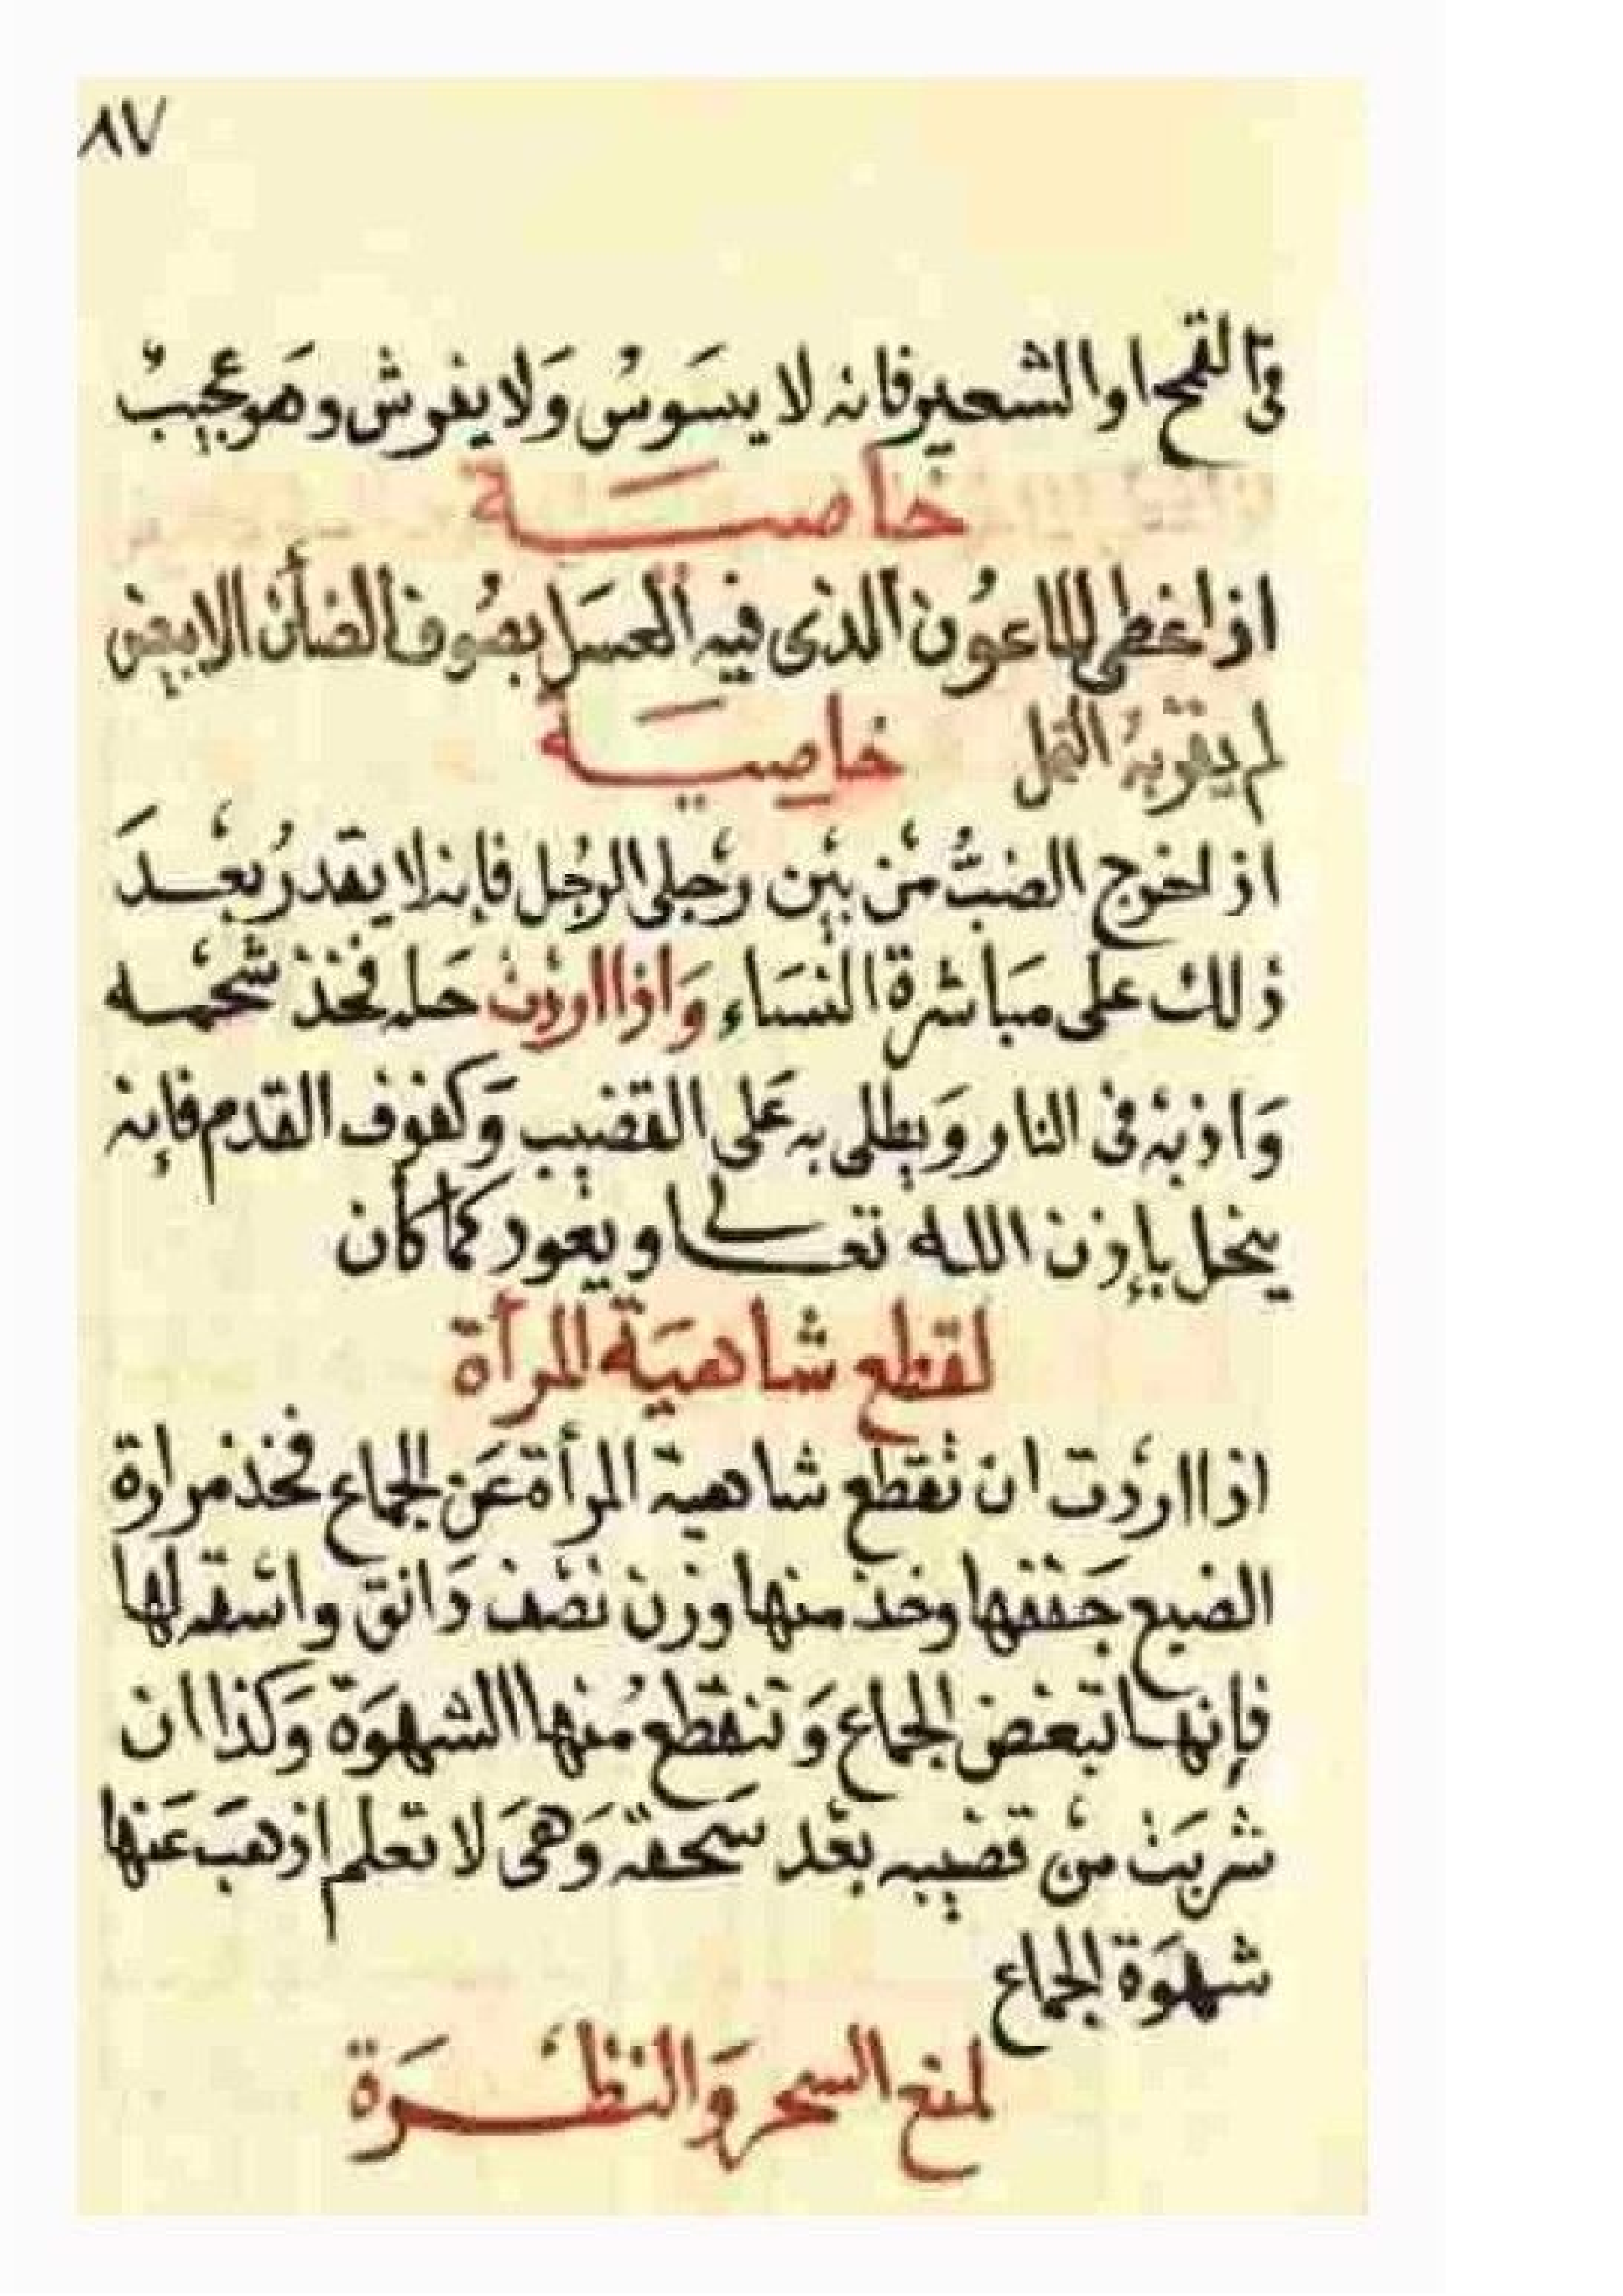 ٨٧
فى القمح او الشعير فانه لا يسَوسُ وَلا يفرش وهو عجيبٌ
خاصيَة
اذا غطى الماعُون الذى فيه العسَل بصُوف الضأن الابيض
لم يقربه النمل خاصيَة
اذا خرج الضبُّ منْ بيْن رجْلى الرجُل فإنه لا يقدرُ بعْدَ
ذلك على مبَاشرة النسَاء وَاذا اردْت حله فخذ شحْمه
وَاذبْه فى النار وَيطلى به عَلى القضيب وَكفوف القدم فإنه
ينحل بإذن الله تعالى ويعود كما كان
لقطع شاهيَة المرأة
اذا اردْت ان تقطع شاهية المرأة عَن الجماع فخذ مرارة
الضبع جَففها وخذ منها وزن نصْف دَانق واسْقه لها
فإنهَا تبغض الجماع وَتنقطع منْها الشهوَة وَكذا ان
شربَتْ منْ قضيبه بعْد سَحقه وَهىَ لا تعلم اذهبَ عَنها
شهوَة الجماع
لمنع السحر وَالنظْرَة